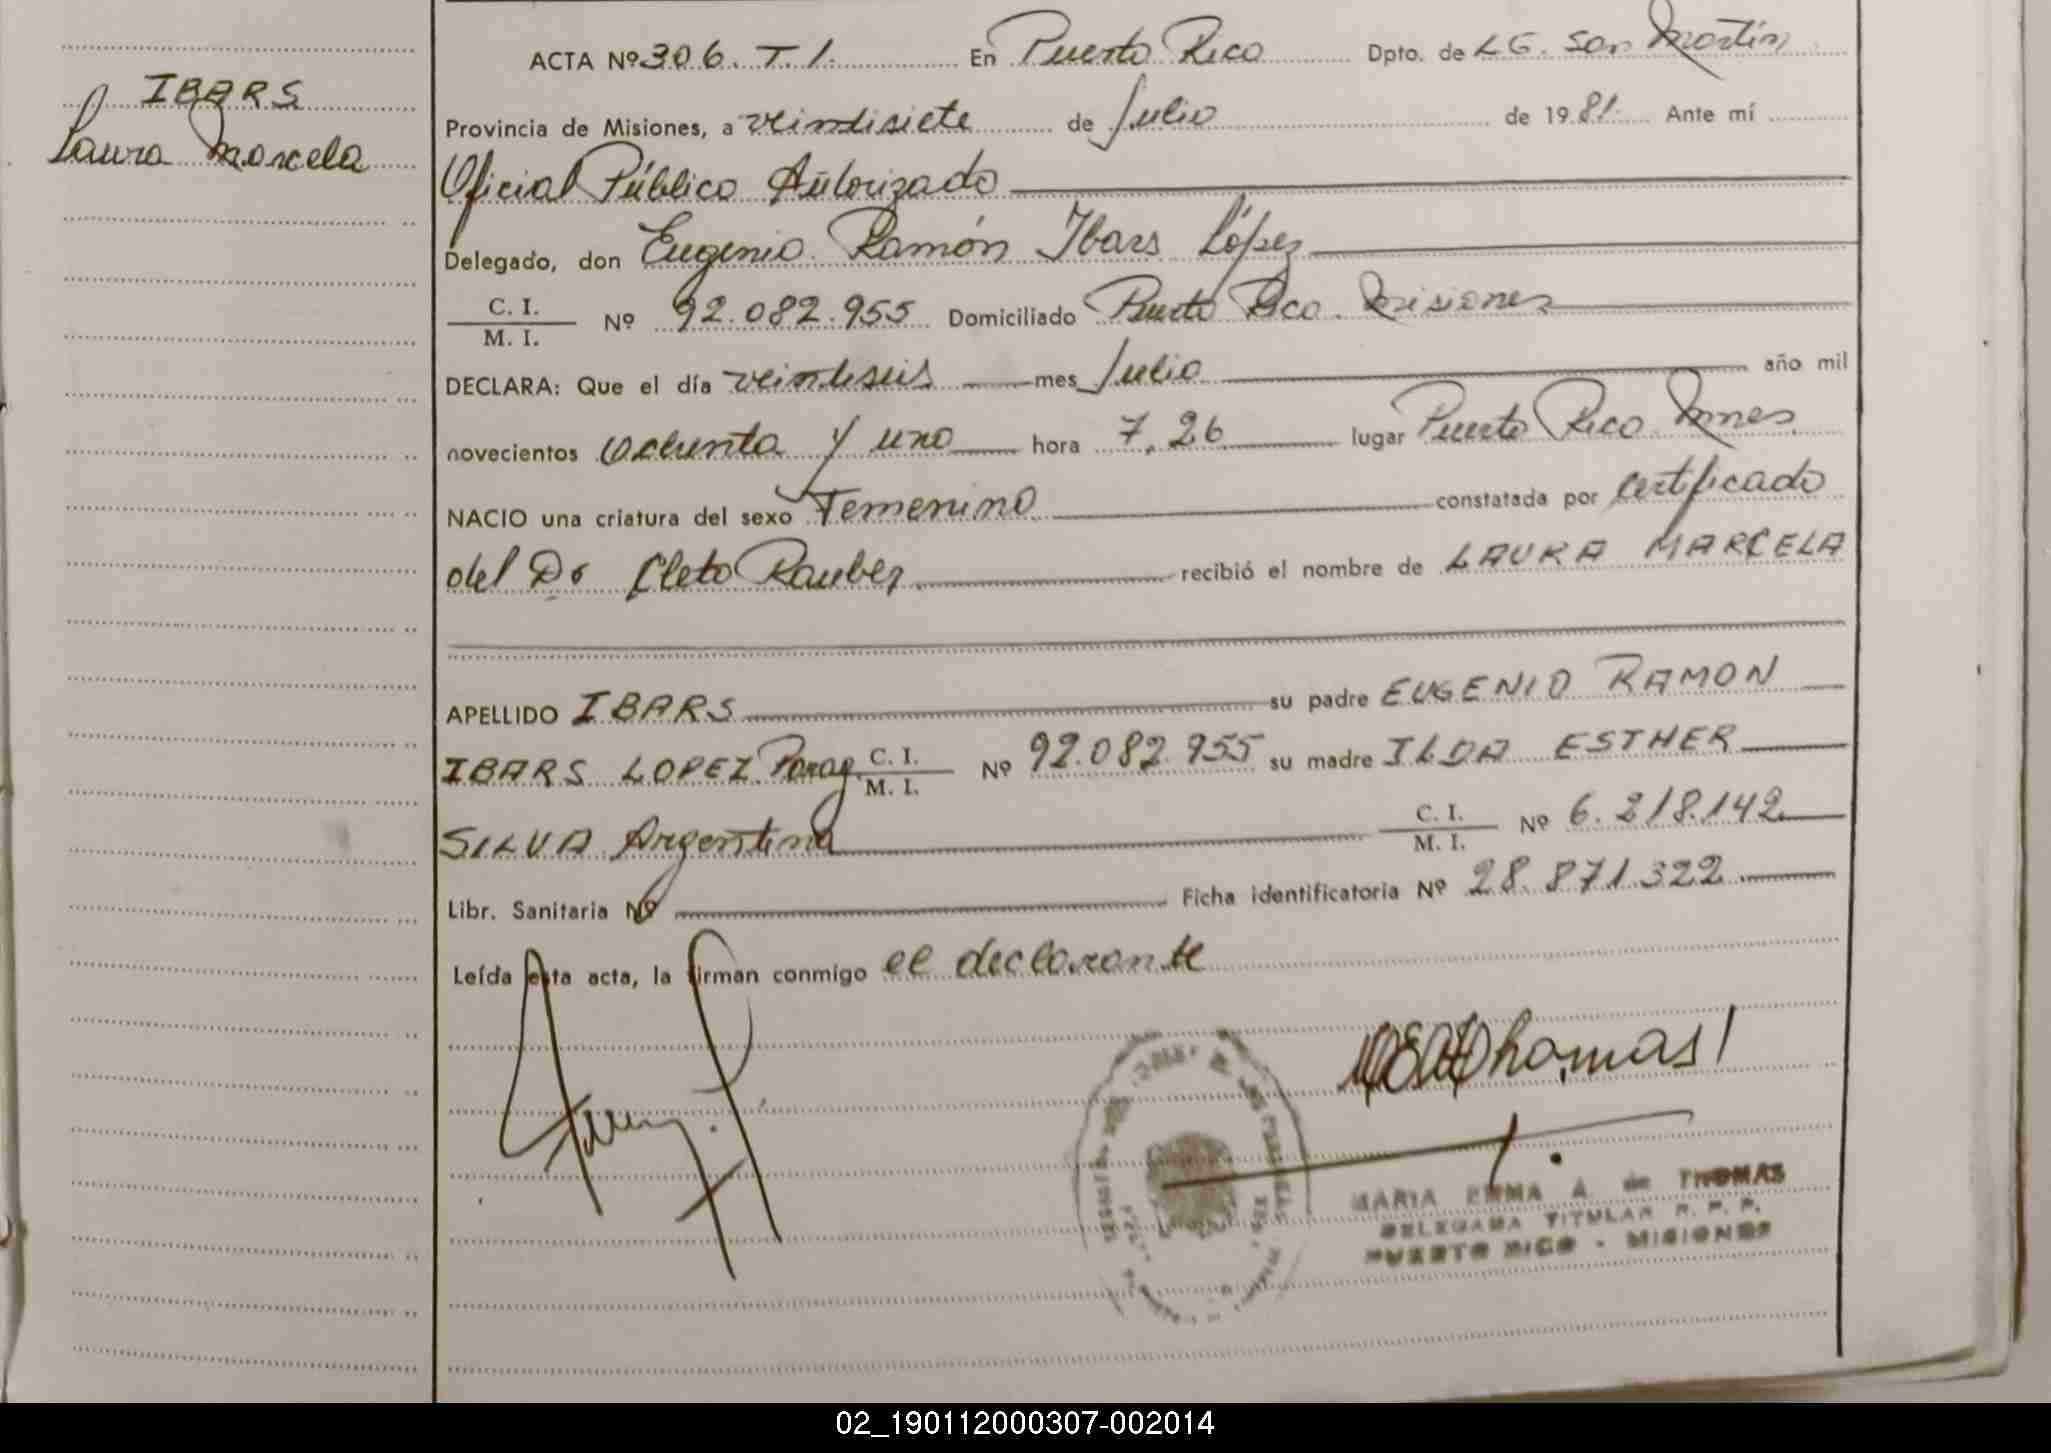 IBARS
Laura Marcela
ACTA Nº 306. T. 1. En Puerto Rico Dpto. de LG. San Martín
Provincia de Misiones, a veintisiete de Julio de 1981. Ante mí
Oficial Público Autorizado
Delegado, don Eugenio Ramón Ibars López
C. I.
M. I. Nº 92.082.955 Domiciliado Puerto Rico. Misiones
DECLARA: Que el día veintiseis mes Julio año mil
novecientos ochenta y uno hora 7.26 lugar Puerto Rico Mnes.
NACIO una criatura del sexo Femenino constatada por certificado
del Dr Cleto Rauber recibió el nombre de LAURA MARCELA
APELLIDO IBARS su padre EUGENIO RAMON
IBARS LOPEZ Parag. C. I. M. I. Nº 92.082.955 su madre ILDA ESTHER
SILVA Argentina C. I. M. I. Nº 6.218.142
Libr. Sanitaria Nº Ficha identificatoria Nº 28.871.322
Leída esta acta, la firman conmigo el declarante
Thomas
MARIA EMMA A. de THOMAS
DELEGADA TITULAR R. P. P.
PUERTO RICO - MISIONES
02_190112000307-002014